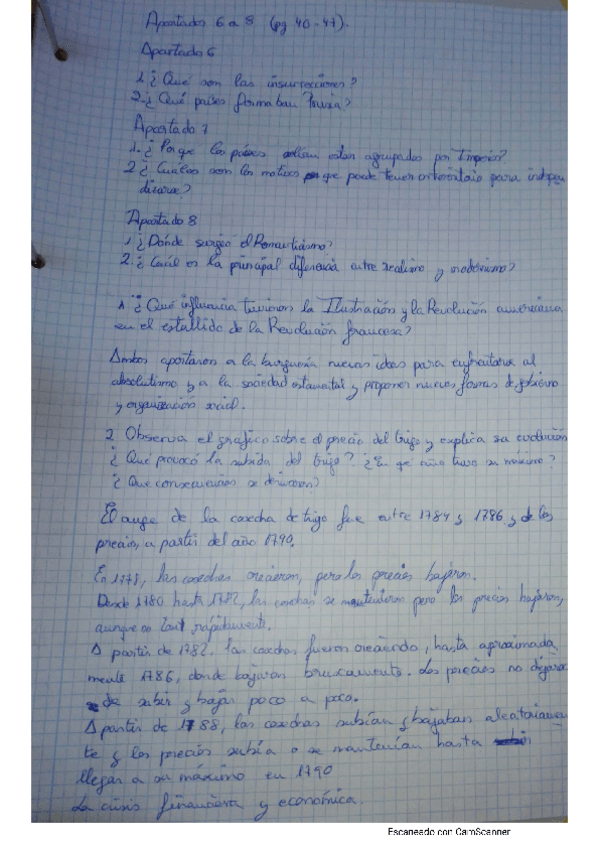 Apartados 6 a 8 (pg 40-47).
Apartado 6
1.¿Qué son las insurrecciones?
2.¿Qué países formaban Prusia?
Apartado 7
1.¿Porque los países solían estar agrupados por Imperios?
2.¿Cuáles son los motivos por que puede tener un territorio para indepen
dizarse?
Apartado 8
1.¿Dónde surgió el Romanticismo?
2.¿Cuál es la principal diferencia entre realismo y modernismo?
1.¿Qué influencia tuvieron la Ilustración y la Revolución americana
en el estallido de la Revolución francesa?
Ambos aportaron a la burguesía nuevas ideas para enfrentarse al
absolutismo y a la sociedad estamental y proponer nuevas formas de gobierno
y organización social.
2 Observa el gráfico sobre el precio del trigo y explica su evolución
¿Qué provocó la subida del trigo? ¿En qué año tuvo su máximo?
¿Que consecuencias se derivaron?
El auge de la cosecha de trigo fue entre 1784 y 1786 y de los
precios, a partir del año 1790.
En 1778, las cosechas crecieron, pero los precios bajaron.
Desde 1780 hasta 1782, las cosechas se mantuvieron pero los precios bajaron,
aunque no tan rápidamente.
A partir de 1782. las cosechas fueron creciendo, hasta aproximada
mente 1786, donde bajaron bruscamente. Los precios no dejaron
de subir y bajar poco a poco.
A partir de 1788, las cosechas subían y bajaban aleatoriamen
te y los precios subía o se mantenían hasta
llegar a su máximo en 1790
La crisis financiera y económica.
Escaneado con CamScanner